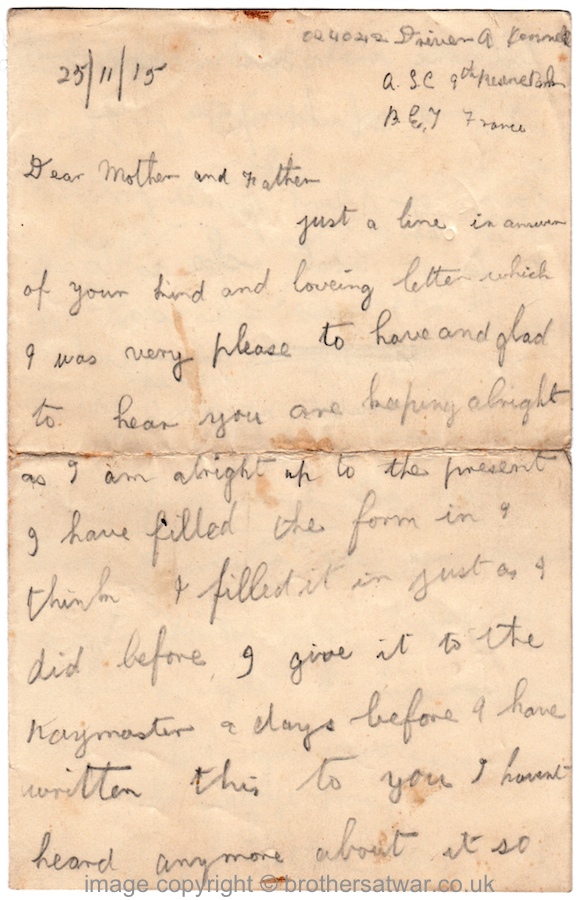 024042 Driver A
25/11/15
A.S.C 9th Reserve Park
B.E,F France
Dear Mother and Father
just a line in answer
of your kind and loveing letter which
I was very please to have and glad
to hear you are keeping alright
as I am alright up to the present
I have filled the form in I
think I filled it in just as I
did before, I give it to the
Paymaster 2 days before I have
written this to you I havent
heard anymore about it so
image copyright © brothersatwar.co.uk